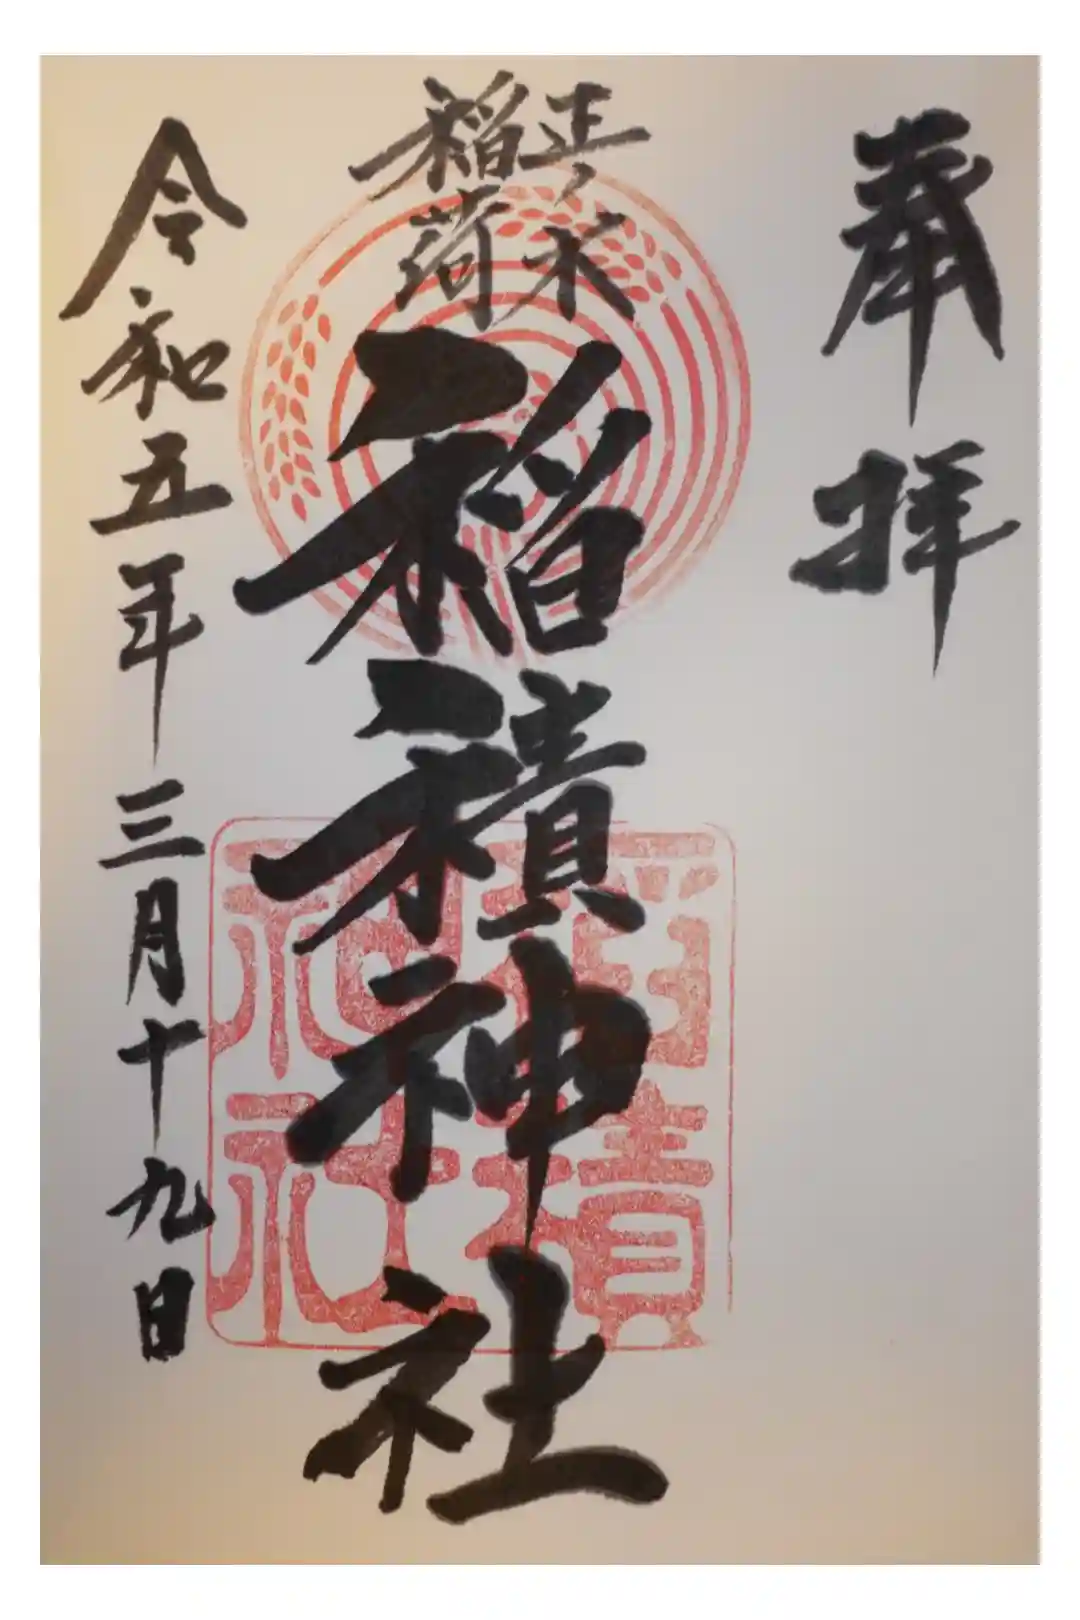 奉拝
正ノ木
稲荷
稲積神社
稲積
神社
令和五年三月十九日